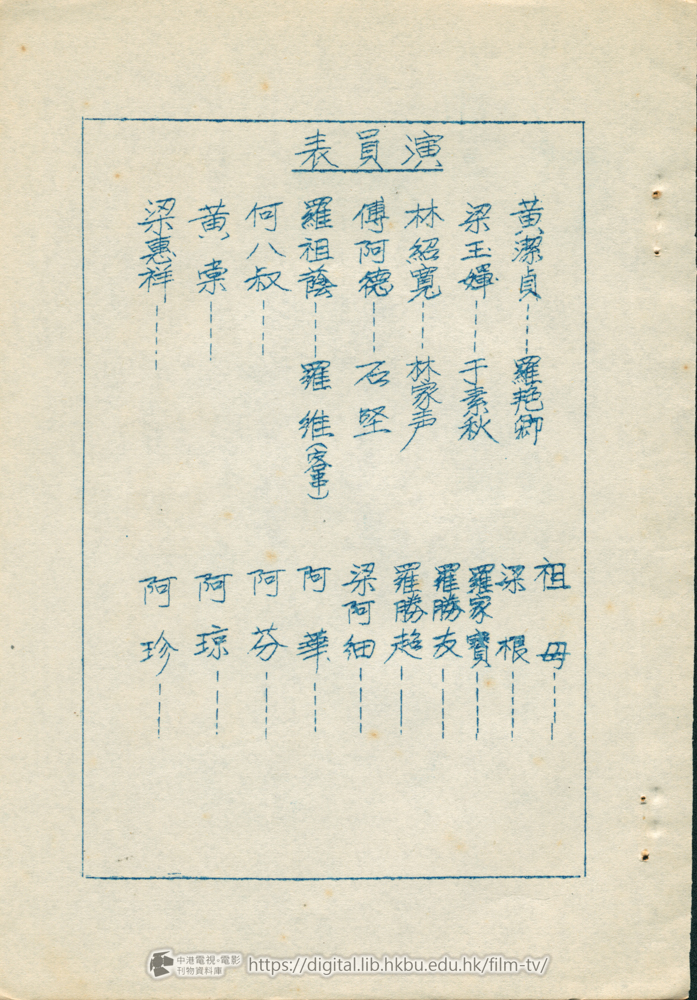 演員表
黃潔貞------羅艳卿
梁玉嬋------于素秋
林紹寬------林家声
傅阿德------石堅
羅祖蔭------羅維(客串)
何八叔------
黃棠------
梁惠祥------
祖母------
梁根------
羅家寶------
羅勝友------
羅勝超------
梁阿細------
阿華------
阿芬------
阿琼------
阿珍------
中港電視·電影
刊物資料庫
https://digital.lib.hkbu.edu.hk/film-tv/